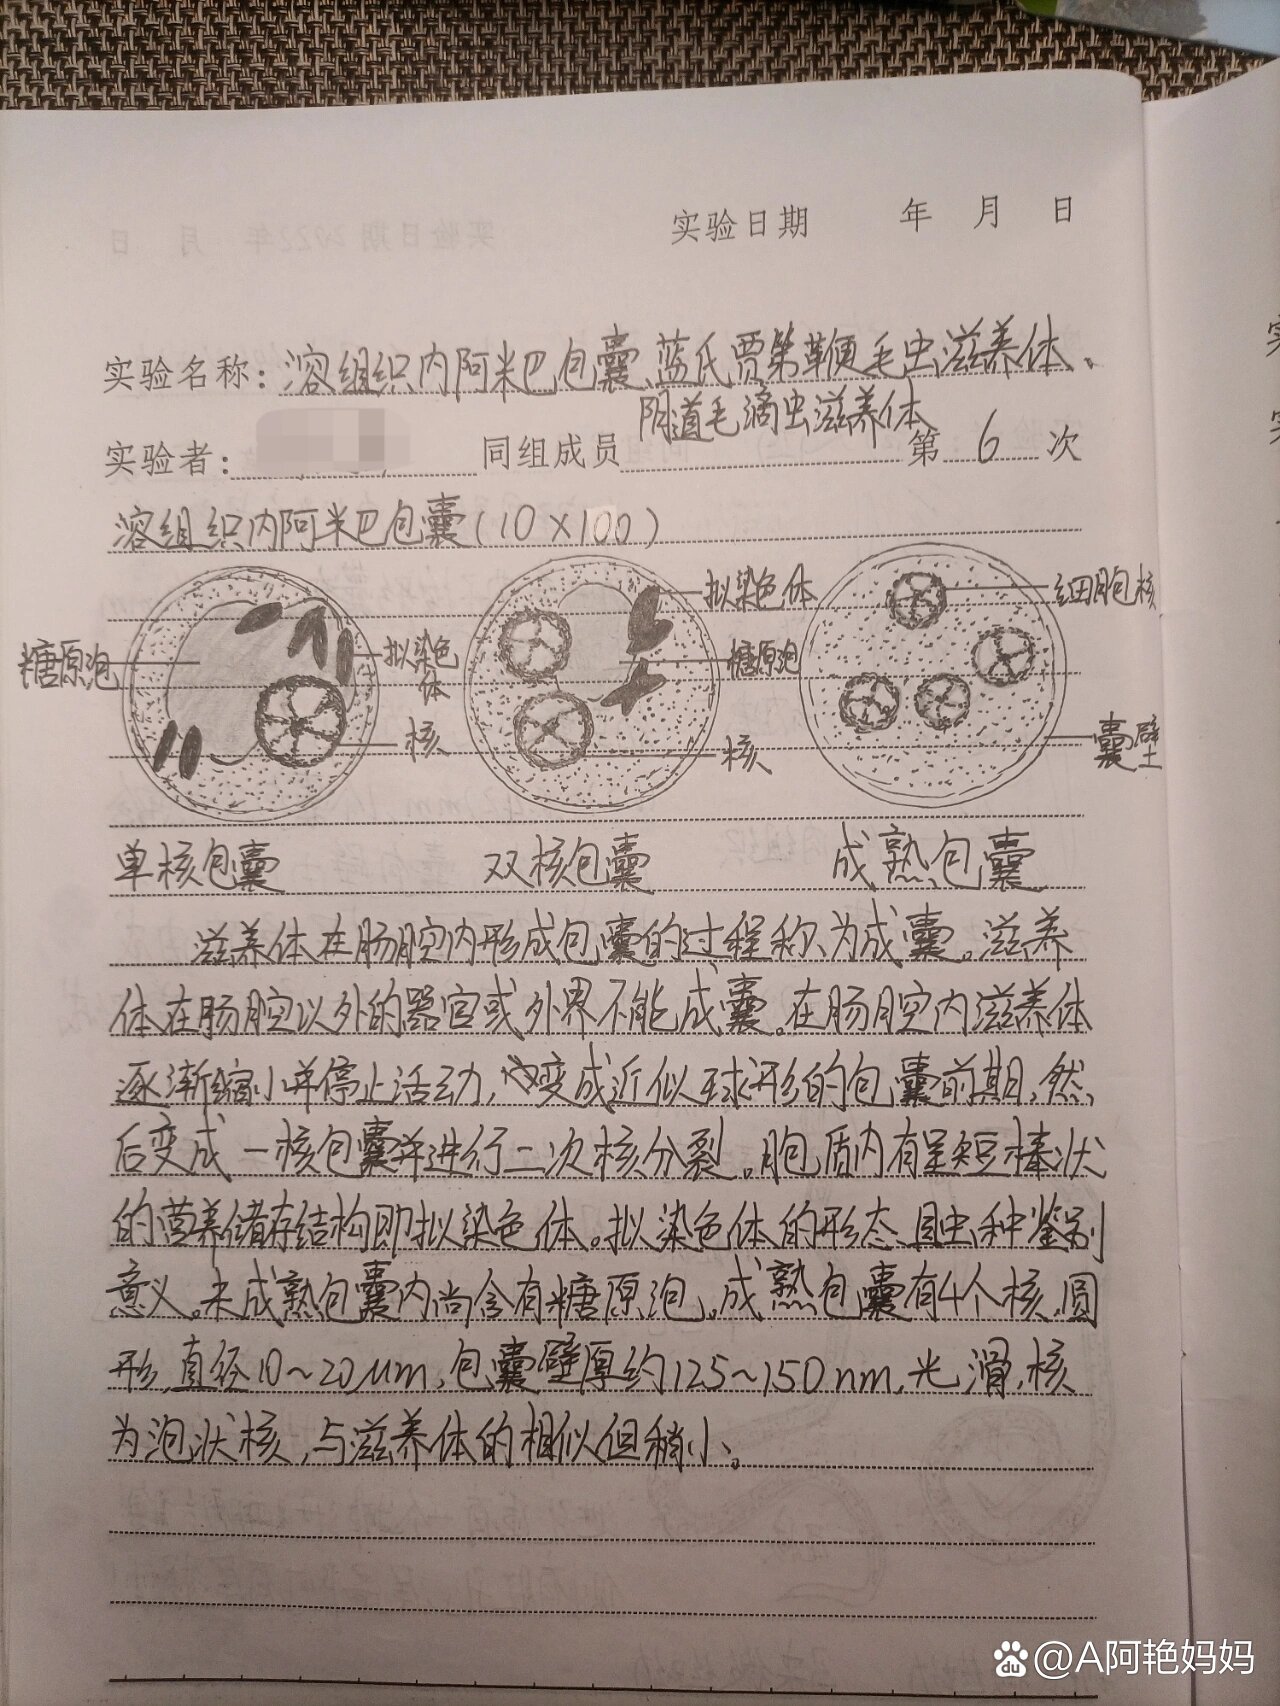 实验日期 年 月 日
实验名称：溶组织内阿米巴包囊、蓝氏贾第鞭毛虫滋养体、
阴道毛滴虫滋养体
实验者： 同组成员 第 6 次
溶组织内阿米巴包囊(10×100)
糖原泡 拟染色体 核
拟染色体 糖原泡 核
细胞核 囊壁
单核包囊 双核包囊 成熟包囊
滋养体在肠腔内形成包囊的过程称为成囊。滋养
体在肠腔以外的器官或外界不能成囊。在肠腔内滋养体
逐渐缩小并停止活动,变成近似球形的包囊前期,然
后变成一核包囊并进行二次核分裂。胞质内有呈短棒状
的营养储存结构即拟染色体。拟染色体的形态具虫种鉴别
意义。未成熟包囊内尚含有糖原泡。成熟包囊有4个核,圆
形,直径10~20μm,包囊壁厚约125~150nm,光滑,核
为泡状核,与滋养体的相似但稍小。
@A阿艳妈妈